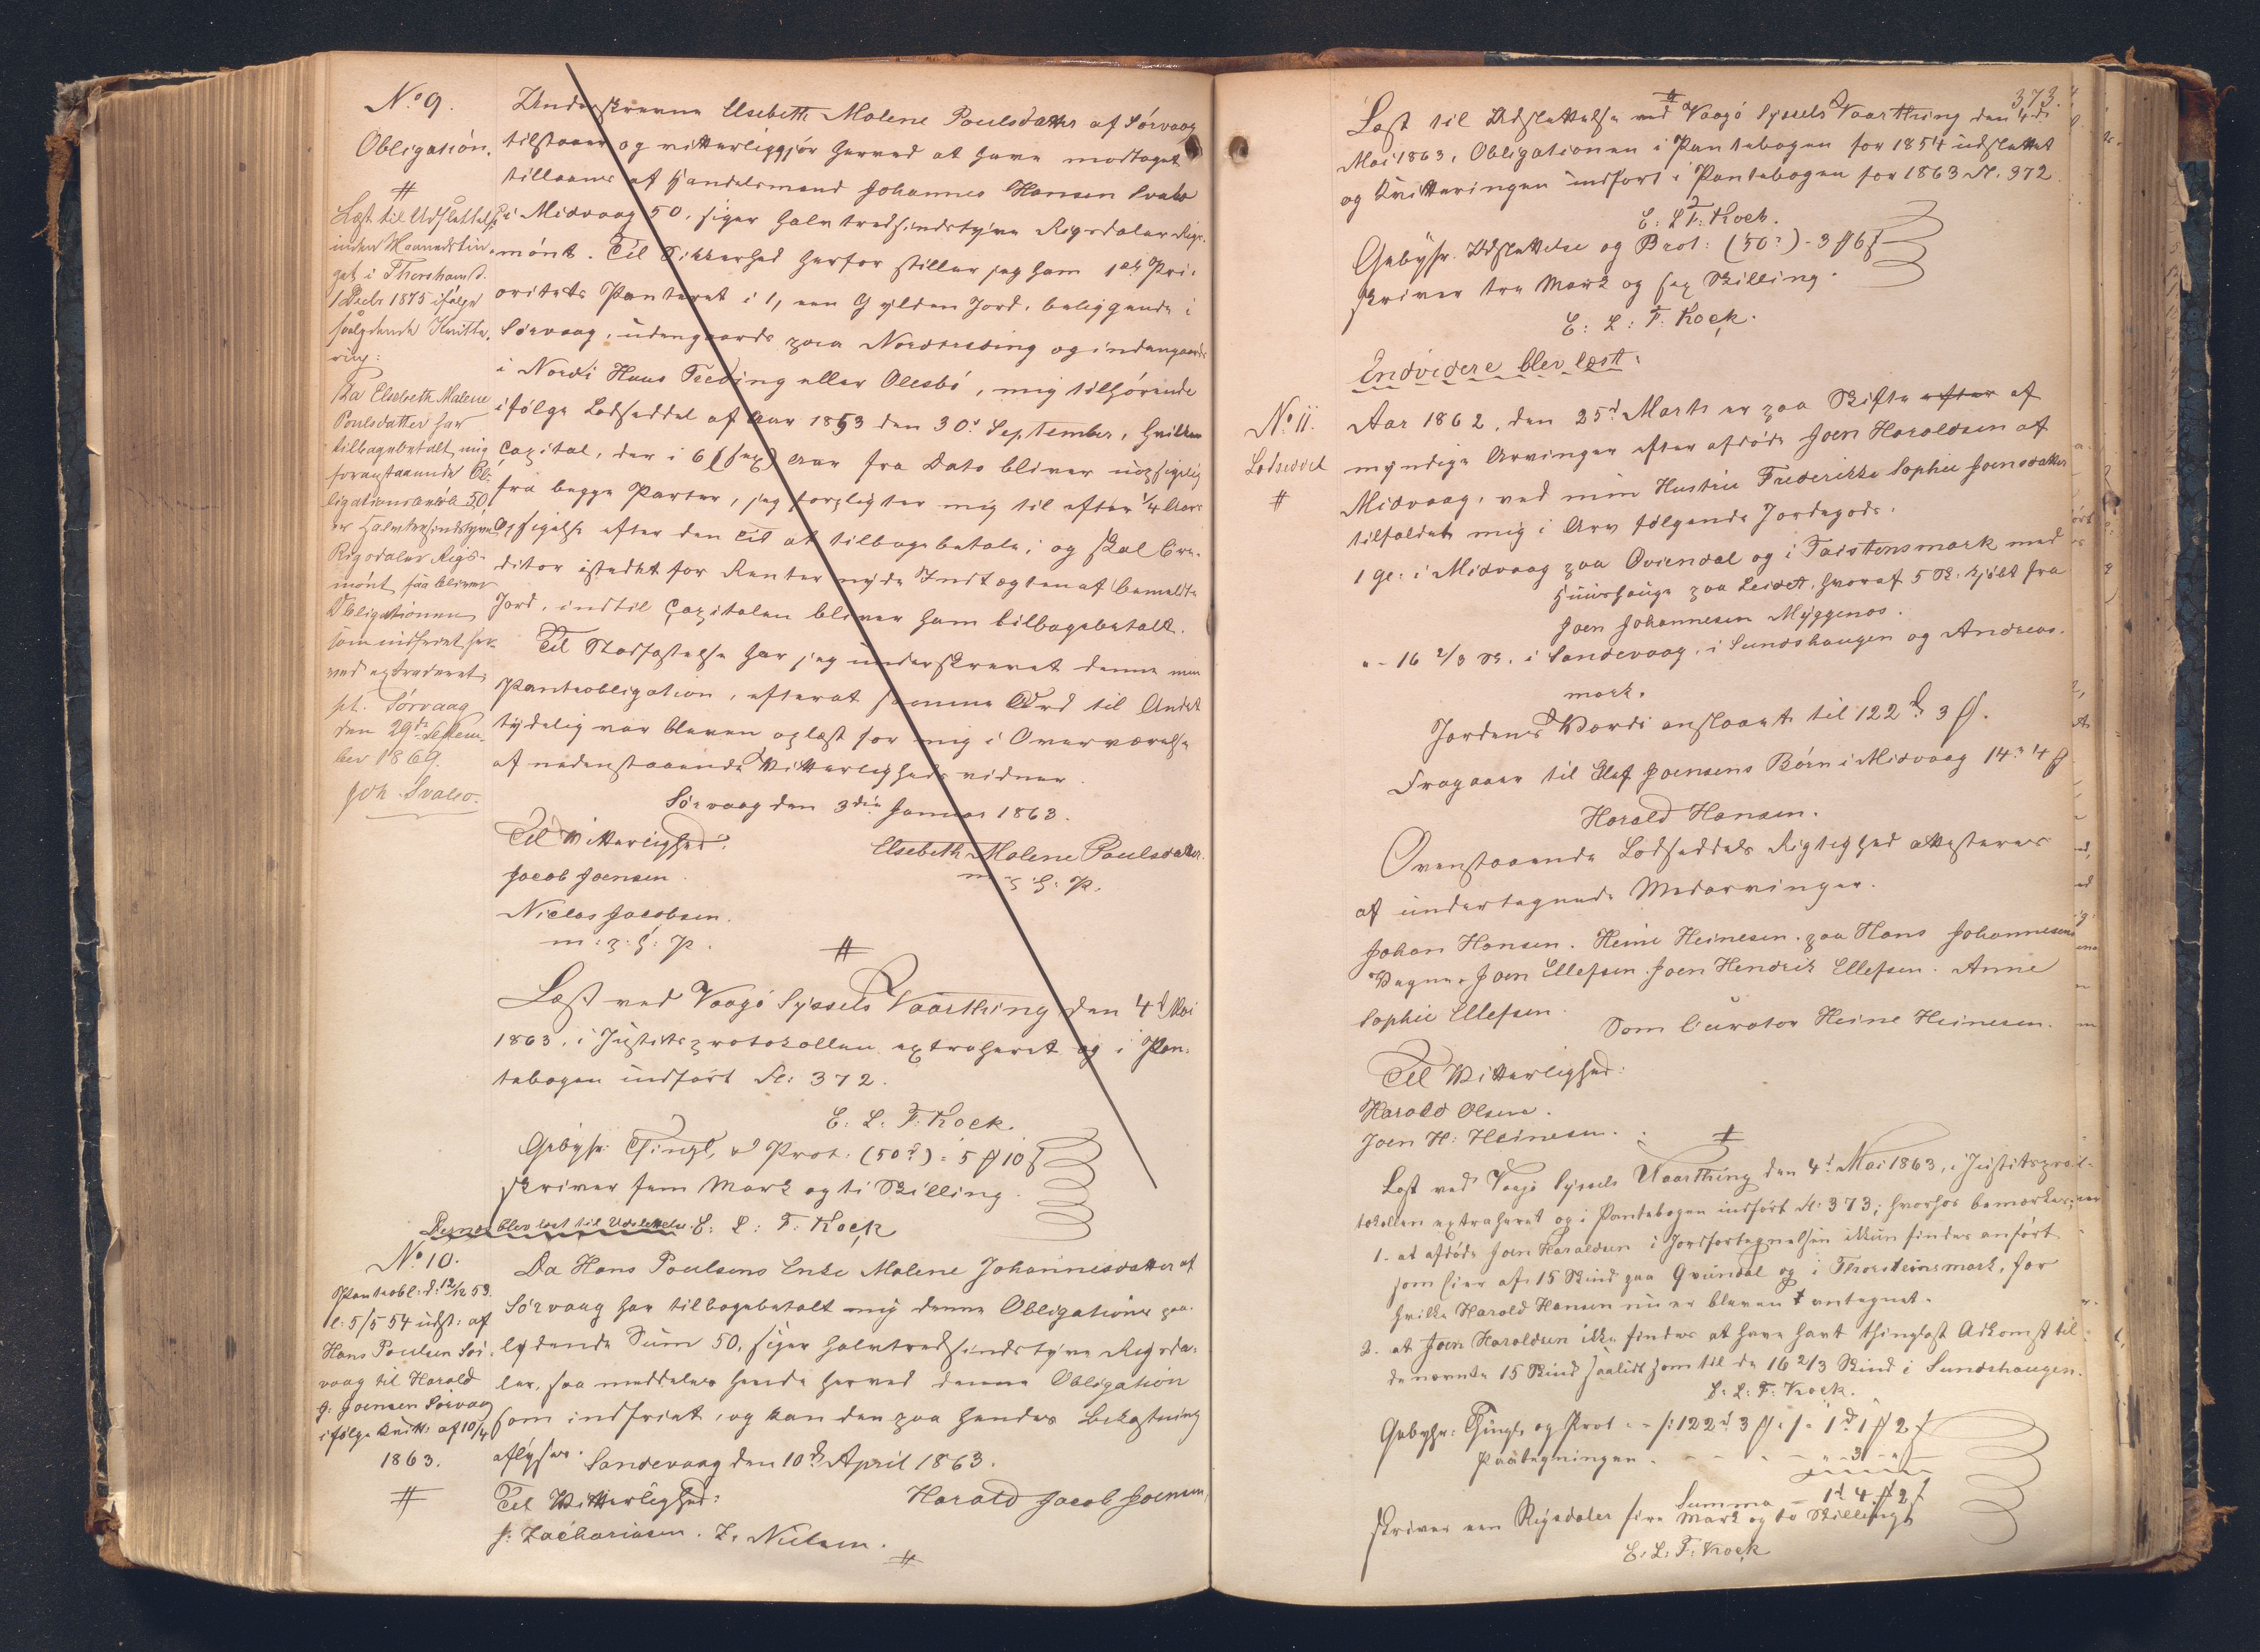 No 9.
Obligation.
#
Læst til Udslettelse
inden Maanedstin-
get i Thorshavn d.
1 Decbr 1875 ifølge
saalydende Kvitte-
ring:
Da Elsebeth Malene
Poulsdatter har
tilbagebetalt mig
foranstaaende Ob-
ligationsbeløb 50,
er halvtredsindstyve
Rigsdaler Rigs-
mønt, saa bliver
Obligationen
som indfriet her-
ved extraderet.
pt. Sørvaag
den 29de Septem-
ber 1869.
Joh. Svabo.
Underskrevne Elsebeth Malene Poulsdatter af Sørvaag
tilstaaer og vitterliggjør herved at have modtaget
tillaans af Handelsmand Johannes Hansen Svabo
i Midvaag 50, siger halvtredsindstyve Rigsdaler Rigs-
mønt. Til Sikkerhed herfor stiller jeg ham 1ste Pri-
oritets Panteret i 1, een Gylden Jord, beliggende i
Sørvaag, udengaards paa Nordtrøding og indengaards
i Nordi Huus Trøding eller Olesbö, mig tilhørende
ifølge Lodseddel af Aar 1853 den 30d September, hvilken
Capital, der i 6 (sex) Aar fra Dato bliver uopsigelig
fra begge Parter, jeg forpligter mig til efter 1/4 Aars
Opsigelse efter den Tid at tilbagebetale; og skal Cre-
ditor istedet for Renter nyde Indtægten af bemeldte
Jord, indtil Capitalen bliver ham tilbagebetalt.
Til Stadfæstelse har jeg underskrevet denne min
Panteobligation, efterat samme Ord til Andet
tydelig var bleven oplæst for mig i Overværelse
af nedenstaaende Vitterligheds vidner.
Sørvaag den 3die Januar 1863.
Til Vitterlighed:
Elsebeth Malene Poulsdatter.
Jacob Joensen.
m. p. h: P.
Niclas Jacobsen.
m: p: h: P.
#
Læst ved Vaagø Syssels Vaarthing den 4d Mai
1863, i Justitsprotokollen extraheret og i Pan-
tebogen indført Fl: 372.
E. L. F. Kock.
Gebyhr: Thingl. & Prot. (50d) = 5 # 10 ß
skriver fem Mark og ti Skilling.
E: L: F. Kock
Dernæst blev læst til Udslettelse:
No 10.
Panteobl: d: 12/12 53.
l: 5/5 54 udst: af
Hans Poulsen Sør-
vaag til Harald
J: Joensen Sørvaag
ifølge Kvitt: af 10/4
1863.
#
Da Hans Poulsens Enke Malene Johannesdatter af
Sørvaag har tilbagebetalt mig denne Obligations paa-
lydende Sum 50, siger halvtredsindstyve Rigsda-
ler, saa meddeles hende herved denne Obligation
som indfriet, og kan den paa hendes Bekostning
aflyses. Sandevaag den 10d April 1863.
Til Vitterlighed:
Harald Jacob Joensen,
J: Zachariasen. Z. Nielsen.
#
373.
#
Læst til Udslettelse ved Vaagø Syssels Vaarthing den 4de
Mai 1863, Obligationen i Pantebogen for 1854 udslettet
og Kvitteringen indført i Pantebogen for 1863 Fl. 372.
E: L F: Kock.
Gebyhr. Udslettelse og Prot: (50d) - 3 # 6 ß
skriver tre Mark og sex Skilling.
E: L: F: Kock.
Endvidere blev læst:
No 11.
Lodseddel
#
Aar 1862, den 25d Marts er paa Skifte efter af
myndige Arvinger efter afdøde Joen Haraldsen af
Midvaag, ved min Hustrue Frederikke Sophie Joensdatter
tilfaldet mig i Arv følgende Jordegods.
1 Gl: i Midvaag paa Qviendal og i Toistensmark med
Huushauge paa Leidett, hvoraf 5 Sk: kjøbt fra
Joen Johannesen Myggenæs.
" - 16 2/3 Sk. i Sandevaag, i Sundshaugen og Andreas-
mark.
Jordens Værdi anslaaet til 122d 3 #.
Fragaaer til Elef Joensens Børn i Midvaag 14d 4 #
Harald Hansen.
Ovenstaaende Lodseddels Rigtighed attesteres
af undertegnede Medarvinger.
Johan Hansen. Heine Heinesen. paa Hans Johannesens
Vegne. Joen Ellefsen. Joen Hendrik Ellefsen. Anne
Sophie Ellefsen.
Som Curator Heine Heinesen.
Til Vitterlighed:
Harald Olsen.
Joen H: Heinesen.
#
Læst ved Vaagø Syssels Vaarthing den 4d Mai 1863, i Justitspro-
tokollen extraheret og i Pantebogen indført Fl: 373; hvorhos bemærkes:
1. at afdøde Joen Haraldsen i Jordfortegnelsen ikkun findes anført
som Eier af 15 Skind paa Qvundal og i Thorsteinsmark, for
hvilke Harald Hansen nu er bleven antegnet.
2. at Joen Haraldsen ikke findes at have havt thinglæst Adkomst til
de nævnte 15 Skind saalidt som til de 16 2/3 Skind i Sundshaugen.
E: L: F: Kock.
Gebyhr: Thingl. og Prot - - /: 122d 3 # :/ - 1d 1 # 2 ß
Paategningen - - - - " - 3 - "
Summa - 1d 4 # 2 ß
skriver een Rigsdaler fire Mark og to Skilling.
E: L: F: Kock